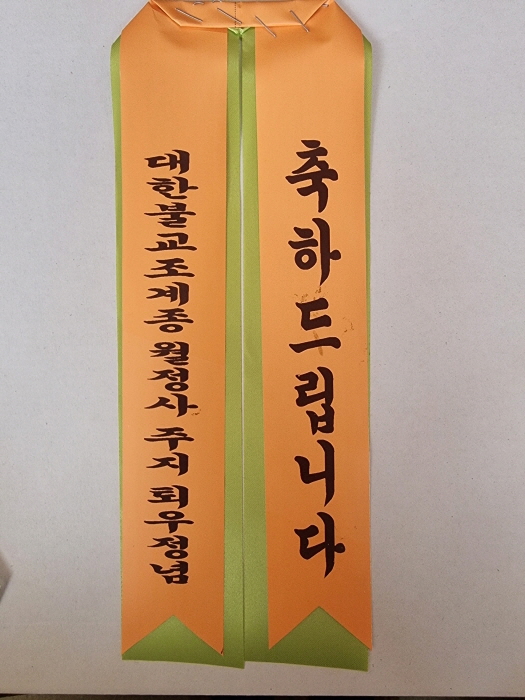 축하드립니다
대한불교조계종 월정사 주지 퇴우정념